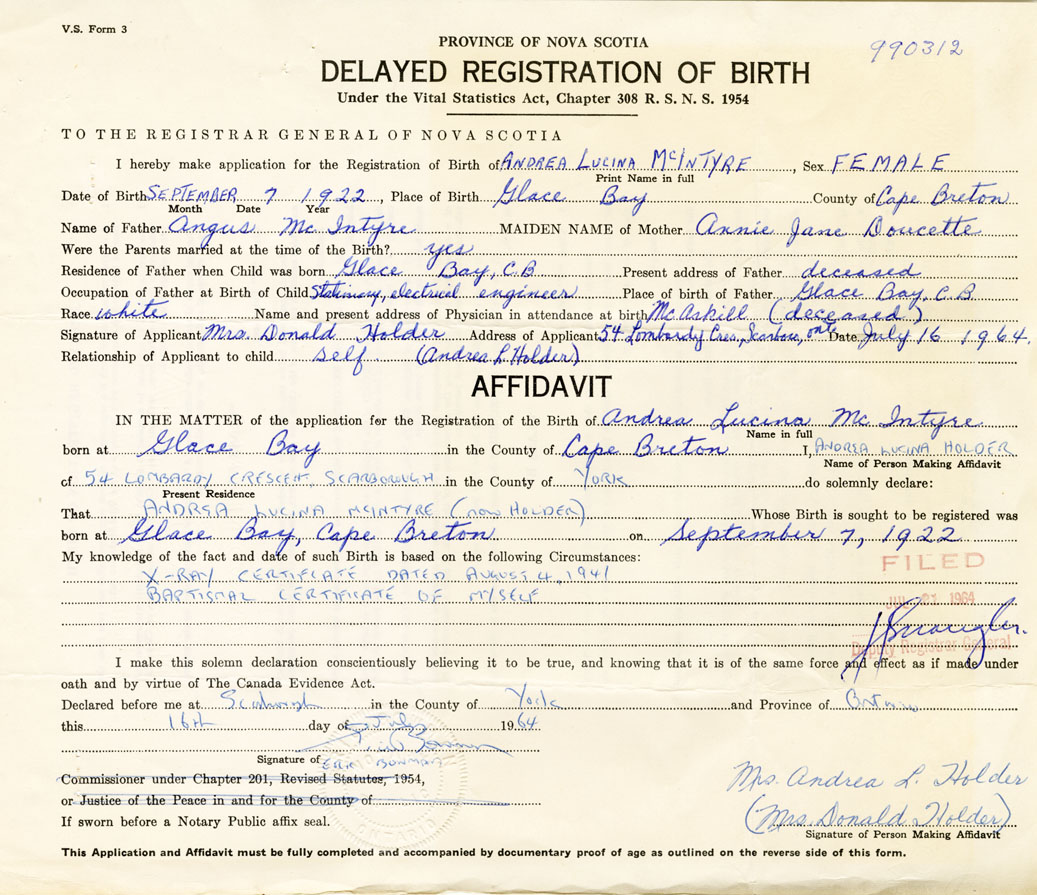 V.S. Form 3
PROVINCE OF NOVA SCOTIA
990312
DELAYED REGISTRATION OF BIRTH
Under the Vital Statistics Act, Chapter 308 R. S. N. S. 1954
TO THE REGISTRAR GENERAL OF NOVA SCOTIA
I hereby make application for the Registration of Birth of ANDREA LUCINA MCINTYRE, Sex FEMALE
Print Name in full
Date of Birth SEPTEMBER 7 1922, Place of Birth Glace Bay County of Cape Breton
Month Date Year
Name of Father Angus Mc Intyre MAIDEN NAME of Mother Annie Jane Doucette
Were the Parents married at the time of the Birth? yes
Residence of Father when Child was born Glace Bay, C.B Present address of Father deceased
Occupation of Father at Birth of Child Stationary, electrical engineer Place of birth of Father Glace Bay, C.B
Race white Name and present address of Physician in attendance at birth McAskill (deceased)
Signature of Applicant Mrs. Donald Holder Address of Applicant 54 Lombardy Cres., Scarboro, Ont. Date July 16 1964.
Relationship of Applicant to child self (Andrea L. Holder)
AFFIDAVIT
IN THE MATTER of the application for the Registration of the Birth of Andrea Lucina Mc Intyre
Name in full
born at Glace Bay in the County of Cape Breton I, ANDREA LUCINA HOLDER
Name of Person Making Affidavit
of 54 LOMBARDY CRESCENT, SCARBOROUGH in the County of YORK do solemnly declare:
Present Residence
That ANDREA LUCINA MCINTYRE (NOW HOLDER) Whose Birth is sought to be registered was
born at Glace Bay, Cape Breton on September 7, 1922
My knowledge of the fact and date of such Birth is based on the following Circumstances:
X-RAY CERTIFICATE DATED AUGUST 4, 1941
BAPTISMAL CERTIFICATE OF MYSELF
FILED
JUL 21 1964
Deputy Registrar General
I make this solemn declaration conscientiously believing it to be true, and knowing that it is of the same force and effect as if made under
oath and by virtue of The Canada Evidence Act.
Declared before me at Scarborough in the County of York and Province of Ontario
this 16th day of July 1964
Signature of ERIC BOWMAN
Commissioner under Chapter 201, Revised Statutes, 1954,
or Justice of the Peace in and for the County of
If sworn before a Notary Public affix seal.
ONTARIO
Mrs. Andrea L. Holder
(Mrs. Donald Holder)
Signature of Person Making Affidavit
This Application and Affidavit must be fully completed and accompanied by documentary proof of age as outlined on the reverse side of this form.